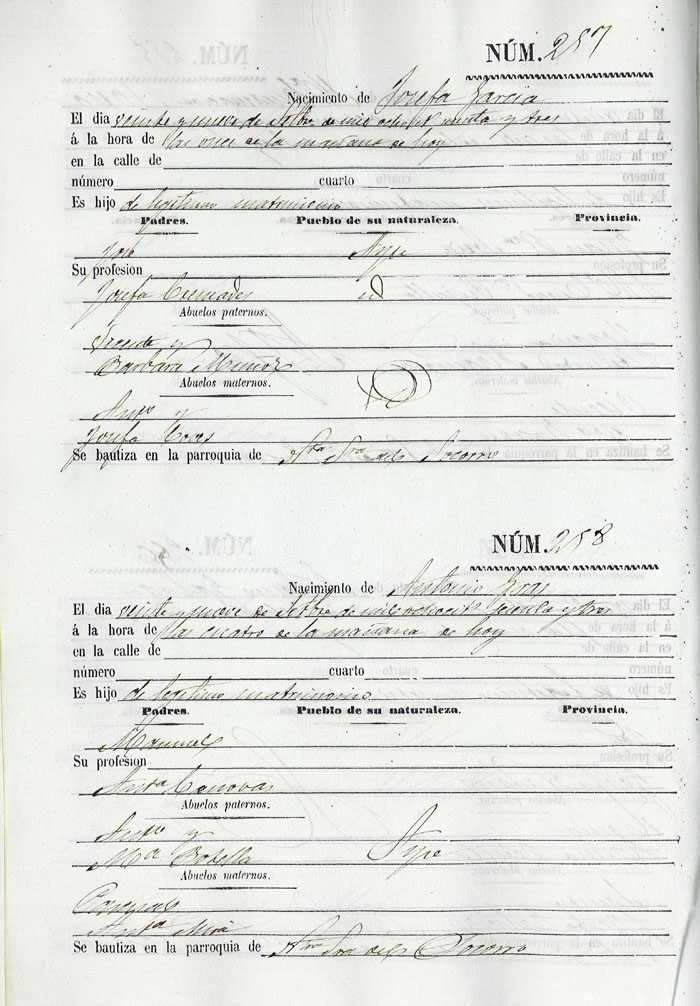 NÚM. 257
Nacimiento de Josefa Garcia
El dia veinte y nueve de Setbre de mil ochocit senta y tres
á la hora de las once de la mañana de hoy
en la calle de
número cuarto
Es hijo de legitimo matrimonio
Padres. Pueblo de su naturaleza. Provincia.
José Aspe
Su profesion
Josefa Cremades id
Abuelos paternos.
Vicente y
Barbara Muñoz
Abuelos maternos.
Antº y
Josefa
Se bautiza en la parroquia de Ntra Sra del Socorro
NÚM. 258
Nacimiento de Antonio Gras
El dia veinte y nueve de Setbre de mil ochocit senta y tres
á la hora de las cuatro de la mañana de hoy
en la calle de
número cuarto
Es hijo de legitimo matrimonio
Padres. Pueblo de su naturaleza. Provincia.
Manuel
Su profesion
Anta Cánovas
Abuelos paternos.
Antº y
Mª Botella Aspe
Abuelos maternos.
Pascual
Anta Mira
Se bautiza en la parroquia de Ntra Sra del Socorro